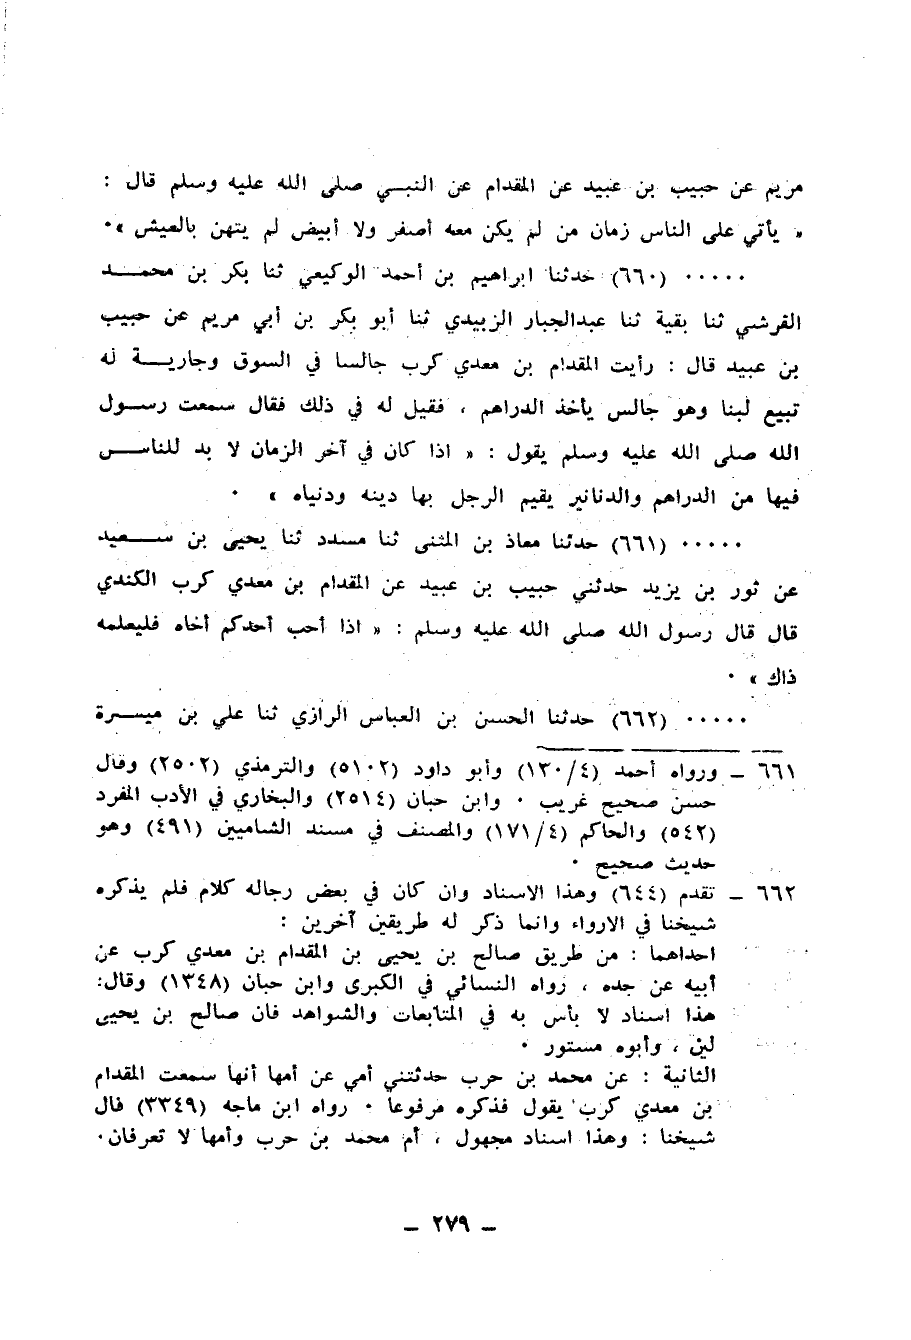 مريم عن حبيب بن عبيد عن المقدام عن النبي صلى الله عليه وسلم قال :
« يأتي على الناس زمان من لم يكن معه أصفر ولا أبيض لم يتهن بالعيش » ٠
٠٠٠٠٠ (٦٦٠) حدثنا ابراهيم بن أحمد الوكيعي ثنا بكر بن محمد
القرشي ثنا بقية ثنا عبدالجبار الزبيدي ثنا أبو بكر بن أبي مريم عن حبيب
بن عبيد قال : رأيت المقدام بن معدي كرب جالسا في السوق وجارية له
تبيع لبنا وهو جالس يأخذ الدراهم ، فقيل له في ذلك فقال سمعت رسول
الله صلى الله عليه وسلم يقول : « اذا كان في آخر الزمان لا بد للناس
فيها من الدراهم والدنانير يقيم الرجل بها دينه ودنياه » ٠
٠٠٠٠٠ (٦٦١) حدثنا معاذ بن المثنى ثنا مسدد ثنا يحيى بن سعيد
عن ثور بن يزيد حدثني حبيب بن عبيد عن المقدام بن معدي كرب الكندي
قال قال رسول الله صلى الله عليه وسلم : « اذا أحب أحدكم أخاه فليعلمه
ذاك » ٠
٠٠٠٠٠ (٦٦٢) حدثنا الحسن بن العباس الرازي ثنا علي بن ميسرة
٦٦١ ـ ورواه أحمد (١٣٠/٤) وأبو داود (٥١٠٢) والترمذي (٢٥٠٢) وقال
حسن صحيح غريب ٠ وابن حبان (٢٥١٤) والبخاري في الأدب المفرد
(٥٤٢) والحاكم (١٧١/٤) والمصنف في مسند الشاميين (٤٩١) وهو
حديث صحيح ٠
٦٦٢ ـ تقدم (٦٤٤) وهذا الاسناد وان كان في بعض رجاله كلام فلم يذكره
شيخنا في الارواء وانما ذكر له طريقين آخرين :
احداهما : من طريق صالح بن يحيى بن المقدام بن معدي كرب عن
أبيه عن جده ، رواه النسائي في الكبرى وابن حبان (١٣٤٨) وقال:
هذا اسناد لا بأس به في المتابعات والشواهد فان صالح بن يحيى
لين ، وأبوه مستور ٠
الثانية : عن محمد بن حرب حدثتني أمي عن أمها أنها سمعت المقدام
بن معدي كرب يقول فذكره مرفوعا ٠ رواه ابن ماجه (٣٣٤٩) قال
شيخنا : وهذا اسناد مجهول ، أم محمد بن حرب وأمها لا تعرفان٠
ـ ٢٧٩ ـ